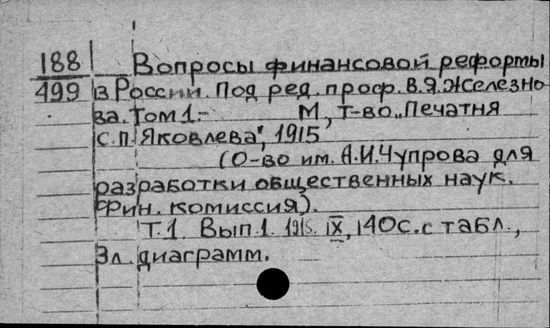 188 Вопросы финансовой реформы
199 в России. Под ред. проф. В.Я. Железно
ва. Том 1.- М, т-во „Печатня
С.П. Яковлева", 1915
(О-во им. А.И.Чупрова для
разработки общественных наук.
Фин. комиссия).
Т.1. Вып.1. 1915. IX, 140с. с табл.,
3л. диаграмм.